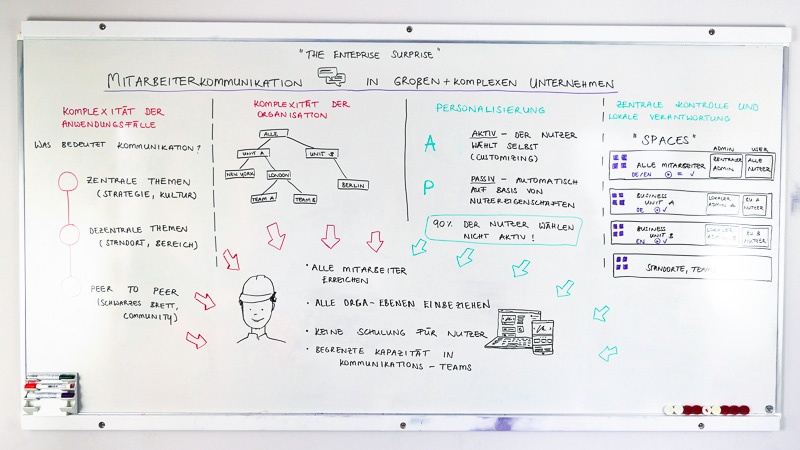 "THE ENTEPRISE SURPRISE"
MITARBEITERKOMMUNIKATION IN GROßEN + KOMPLEXEN UNTERNEHMEN
KOMPLEXITÄT DER
ANWENDUNGSFÄLLE
WAS BEDEUTET KOMMUNIKATION?
ZENTRALE THEMEN
(STRATEGIE, KULTUR)
DEZENTRALE THEMEN
(STANDORT, BEREICH)
PEER TO PEER
(SCHWARZES BRETT,
COMMUNITY)
KOMPLEXITÄT DER
ORGANISATION
ALLE
UNIT A
UNIT B
NEW YORK
LONDON
BERLIN
TEAM A
TEAM B
PERSONALISIERUNG
A
AKTIV – DER NUTZER
WÄHLT SELBST
(CUSTOMIZING)
P
PASSIV – AUTOMATISCH
AUF BASIS VON
NUTZEREIGENSCHAFTEN
90% DER NUTZER WÄHLEN
NICHT AKTIV!
ZENTRALE KONTROLLE UND
LOKALE VERANTWORTUNG
"SPACES"
ADMIN
USER
ALLE MITARBEITER
DE/EN
ZENTRALER
ADMIN
ALLE
NUTZER
BUSINESS
UNIT A
DE
LOKALER
ADMIN A
BU A
NUTZER
BUSINESS
UNIT B
EN
LOKALER
ADMIN B
BU B
NUTZER
STANDORTE, TEAMS
• ALLE MITARBEITER
ERREICHEN
• ALLE ORGA-EBENEN EINBEZIEHEN
• KEINE SCHULUNG FÜR NUTZER
• BEGRENZTE KAPAZITÄT IN
KOMMUNIKATIONS-TEAMS